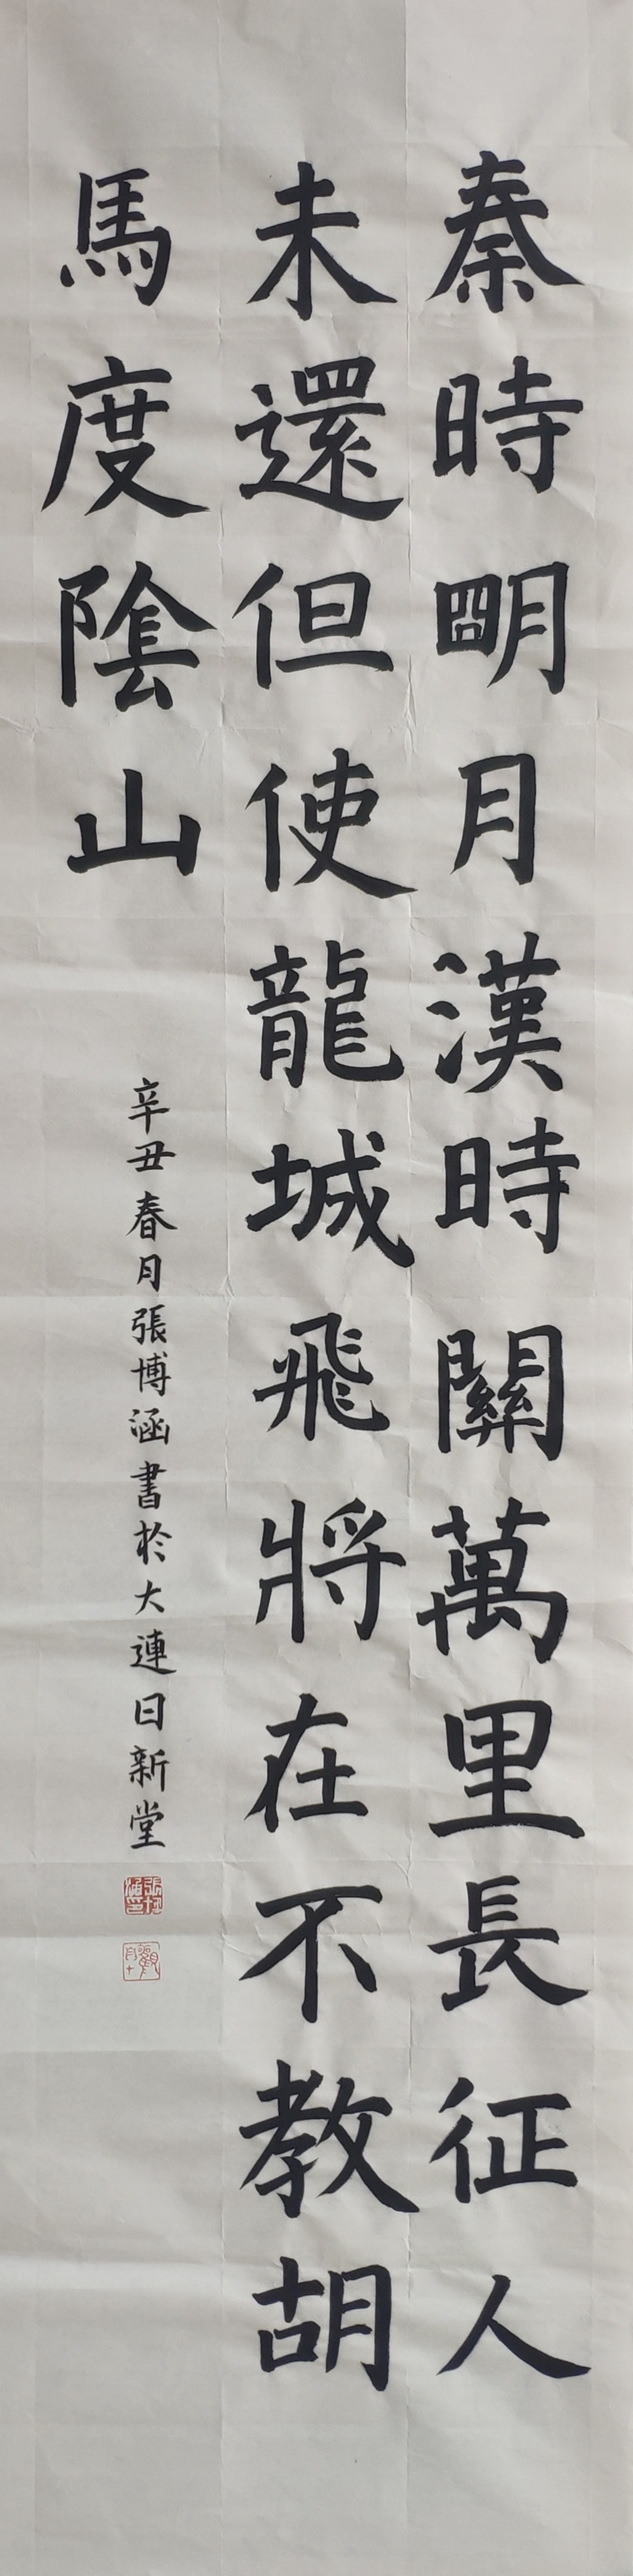 秦時明月漢時關萬里長征人
未還但使龍城飛將在不教胡
馬度陰山
辛丑春月張博涵書於大連日新堂